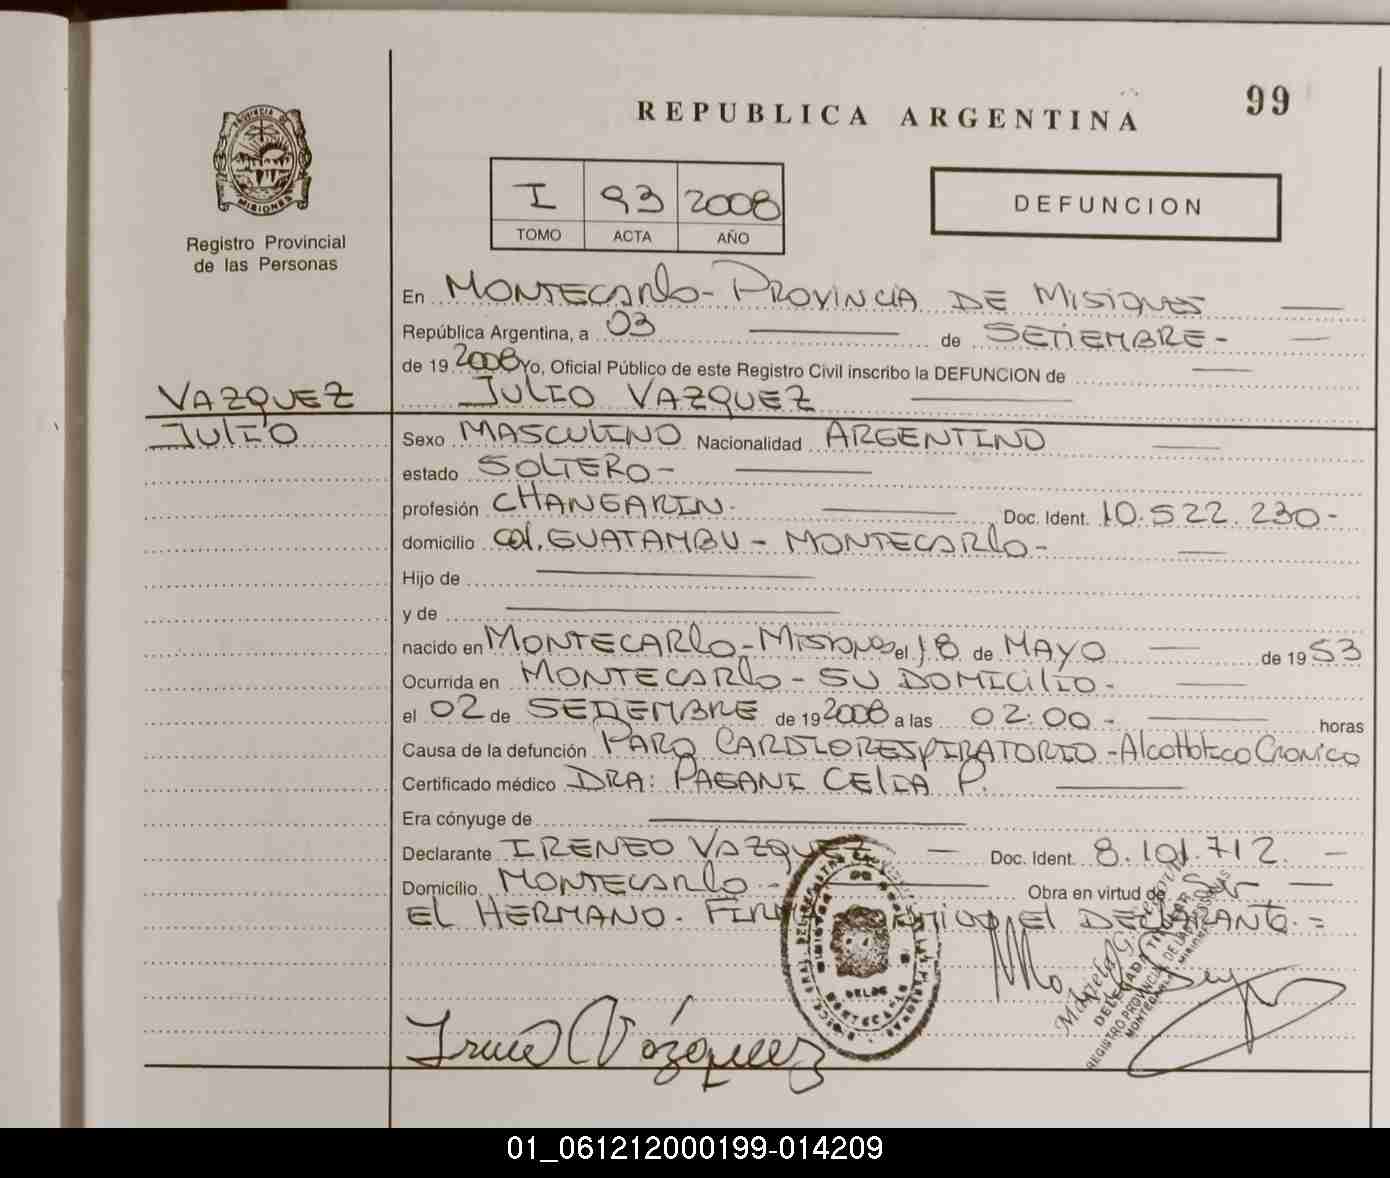 99
REPUBLICA ARGENTINA
PROVINCIA DE
MISIONES
Registro Provincial
de las Personas
I 93 2008
TOMO ACTA AÑO
DEFUNCION
En MONTECARlo - PROVINCIA DE MISIONES
República Argentina, a 03 de SETIEMBRE -
de 19 2008 Yo, Oficial Público de este Registro Civil inscribo la DEFUNCION de
VAZQUEZ
JULIO VAZQUEZ
JULIO
Sexo MASCULINO Nacionalidad ARGENTINO
estado SOLTERO -
profesión CHANGARIN. Doc. Ident. 10.522.230-
domicilio col. GUATAMBU - MONTECARlo -
Hijo de
y de
nacido en MONTECARlo - MISIONES el 18 de MAYO de 19 53
Ocurrida en MONTECARlo - SU DOMICILIO -
el 02 de SETIEMBRE de 19 2008 a las 02:00 - horas
Causa de la defunción PARO CARDIORESPIRATORIO - AlcoHolico Cronico
Certificado médico DRA: PAGANI CELIA P.
Era cónyuge de
Declarante IRENEO VAZQUEZ Doc. Ident. 8.101.712. -
Domicilio MONTECARlo - Obra en virtud de Ser
EL HERMANO. FIRMA el DECLARANTE. =
MONTECARLO
DELEGADA TITULAR
REGISTRO PROVINCIAL DE LAS PERSONAS
Ireneo Vázquez
01_061212000199-014209